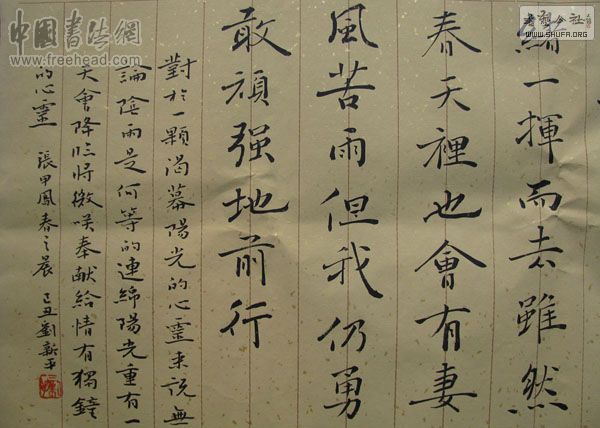 中國書法網
http://www.freehead.com
書藝公社
WWW.SHUFA.ORG
緒一揮而去雖然
春天裡也會有妻
風苦雨但我仍勇
敢頑强地前行
對於一顆渴慕陽光的心靈来説無
論陰雨是何等的連綿陽光重有一
天會降臨將微咲奉献給情有獨鐘
的心靈 張甲鳳春之晨 己丑劉新平